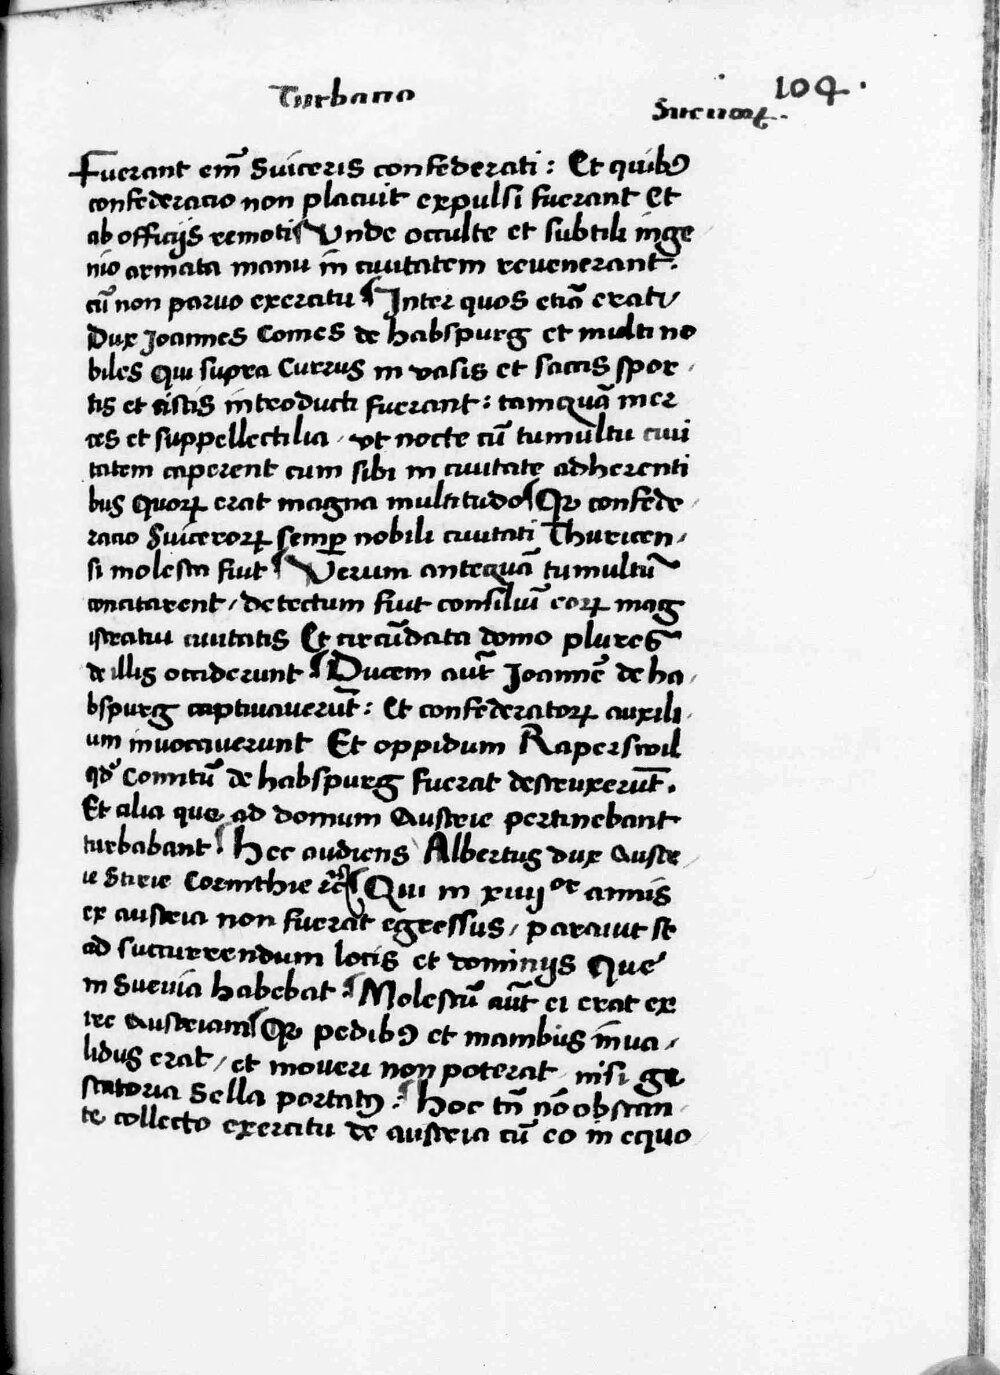 Turbacio
104.
Suevorꝝ.
Fuerant em̄ Suiceris confederati: Et quibꝰ
confederacio non placuit expulsi fuerant Et
ab officijs remoti Vnde occulte et subtili inge
nio armata manu in ciuitatem revenerant.
cū non paruo exercitu Inter quos etiā erat
Dux Joannes Comes de habspurg et multi no
biles Qui supra Currus in vasis et saccis spor
tis et cistis introducti fuerant: tamquā mer
ces et suppellectilia, vt nocte cū tumultu ciui
tatem caperent cum sibi in ciuitate adherenti
bus Quorꝝ erat magna multitudo Qꝛ confede
racio Suicerorꝝ semꝑ nobili ciuitati Thuricen
si molesta fuit Verum antequā tumultū
concitarent, detectum fuit consiliū eorꝝ mag
istratui ciuitatis Et circūdata domo plures
de illis occiderunt Ducem aūt Joannē de ha
bspurg captivaverūt: Et confederatorꝝ auxili
um invocaverunt Et oppidum Raperswil
qd̕ Comitū de habspurg fuerat destruxerūt.
Et alia que ad domum Austrie pertinebant
turbabant. Hec audiens Albertus dux Austr
ie Stirie Corinthie ꝛc̄ Qui in xiiii or annis
ex austria non fuerat egressus, parauit se
ad succurrendum locis et dominijs Que
in Suevia habebat Molestū aūt ei erat ex
ire Austriam Qꝛ pedibꝰ et manibus inva
lidus erat, et moveri non poterat nisi ge
statoria Sella portatꝰ. Hoc tn̄ nō obstan
te collecto exercitu de austria cū eo in equo